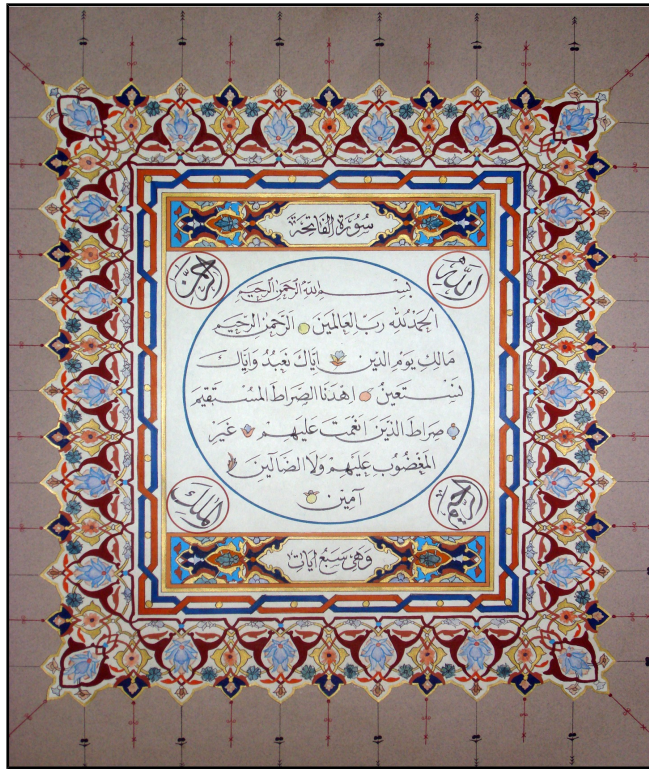 سُورَةُ الْفَاتِحَةِ
الله
الرحمن
بسم الله الرحمن الرحيم
الحمد لله رب العالمين الرحمن الرحيم
مالك يوم الدين اياك نعبد واياك
نستعين اهدنا الصراط المستقيم
صراط الذين انعمت عليهم غير
المغضوب عليهم ولا الضالين
آمين
الرحيم
الملك
وهي سبع ايات